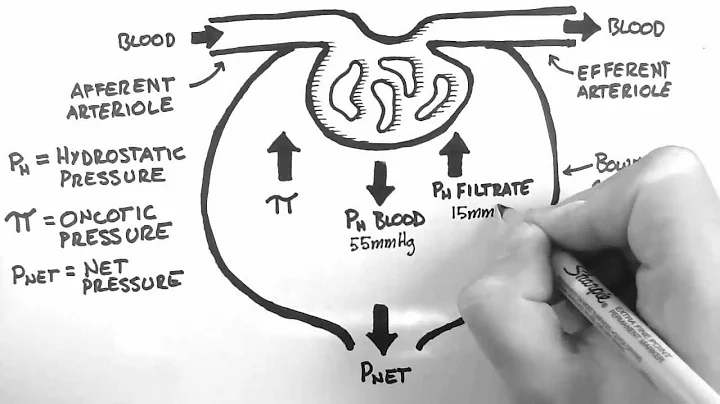 BLOOD
BLOOD
AFFERENT
ARTERIOLE
EFFERENT
ARTERIOLE
PH = HYDROSTATIC
PRESSURE
π = ONCOTIC
PRESSURE
PNET = NET
PRESSURE
π
PH BLOOD
55mmHg
PH FILTRATE
15mm
PNET
Sharpie
EXTRA FINE POINT
PERMANENT MARKER